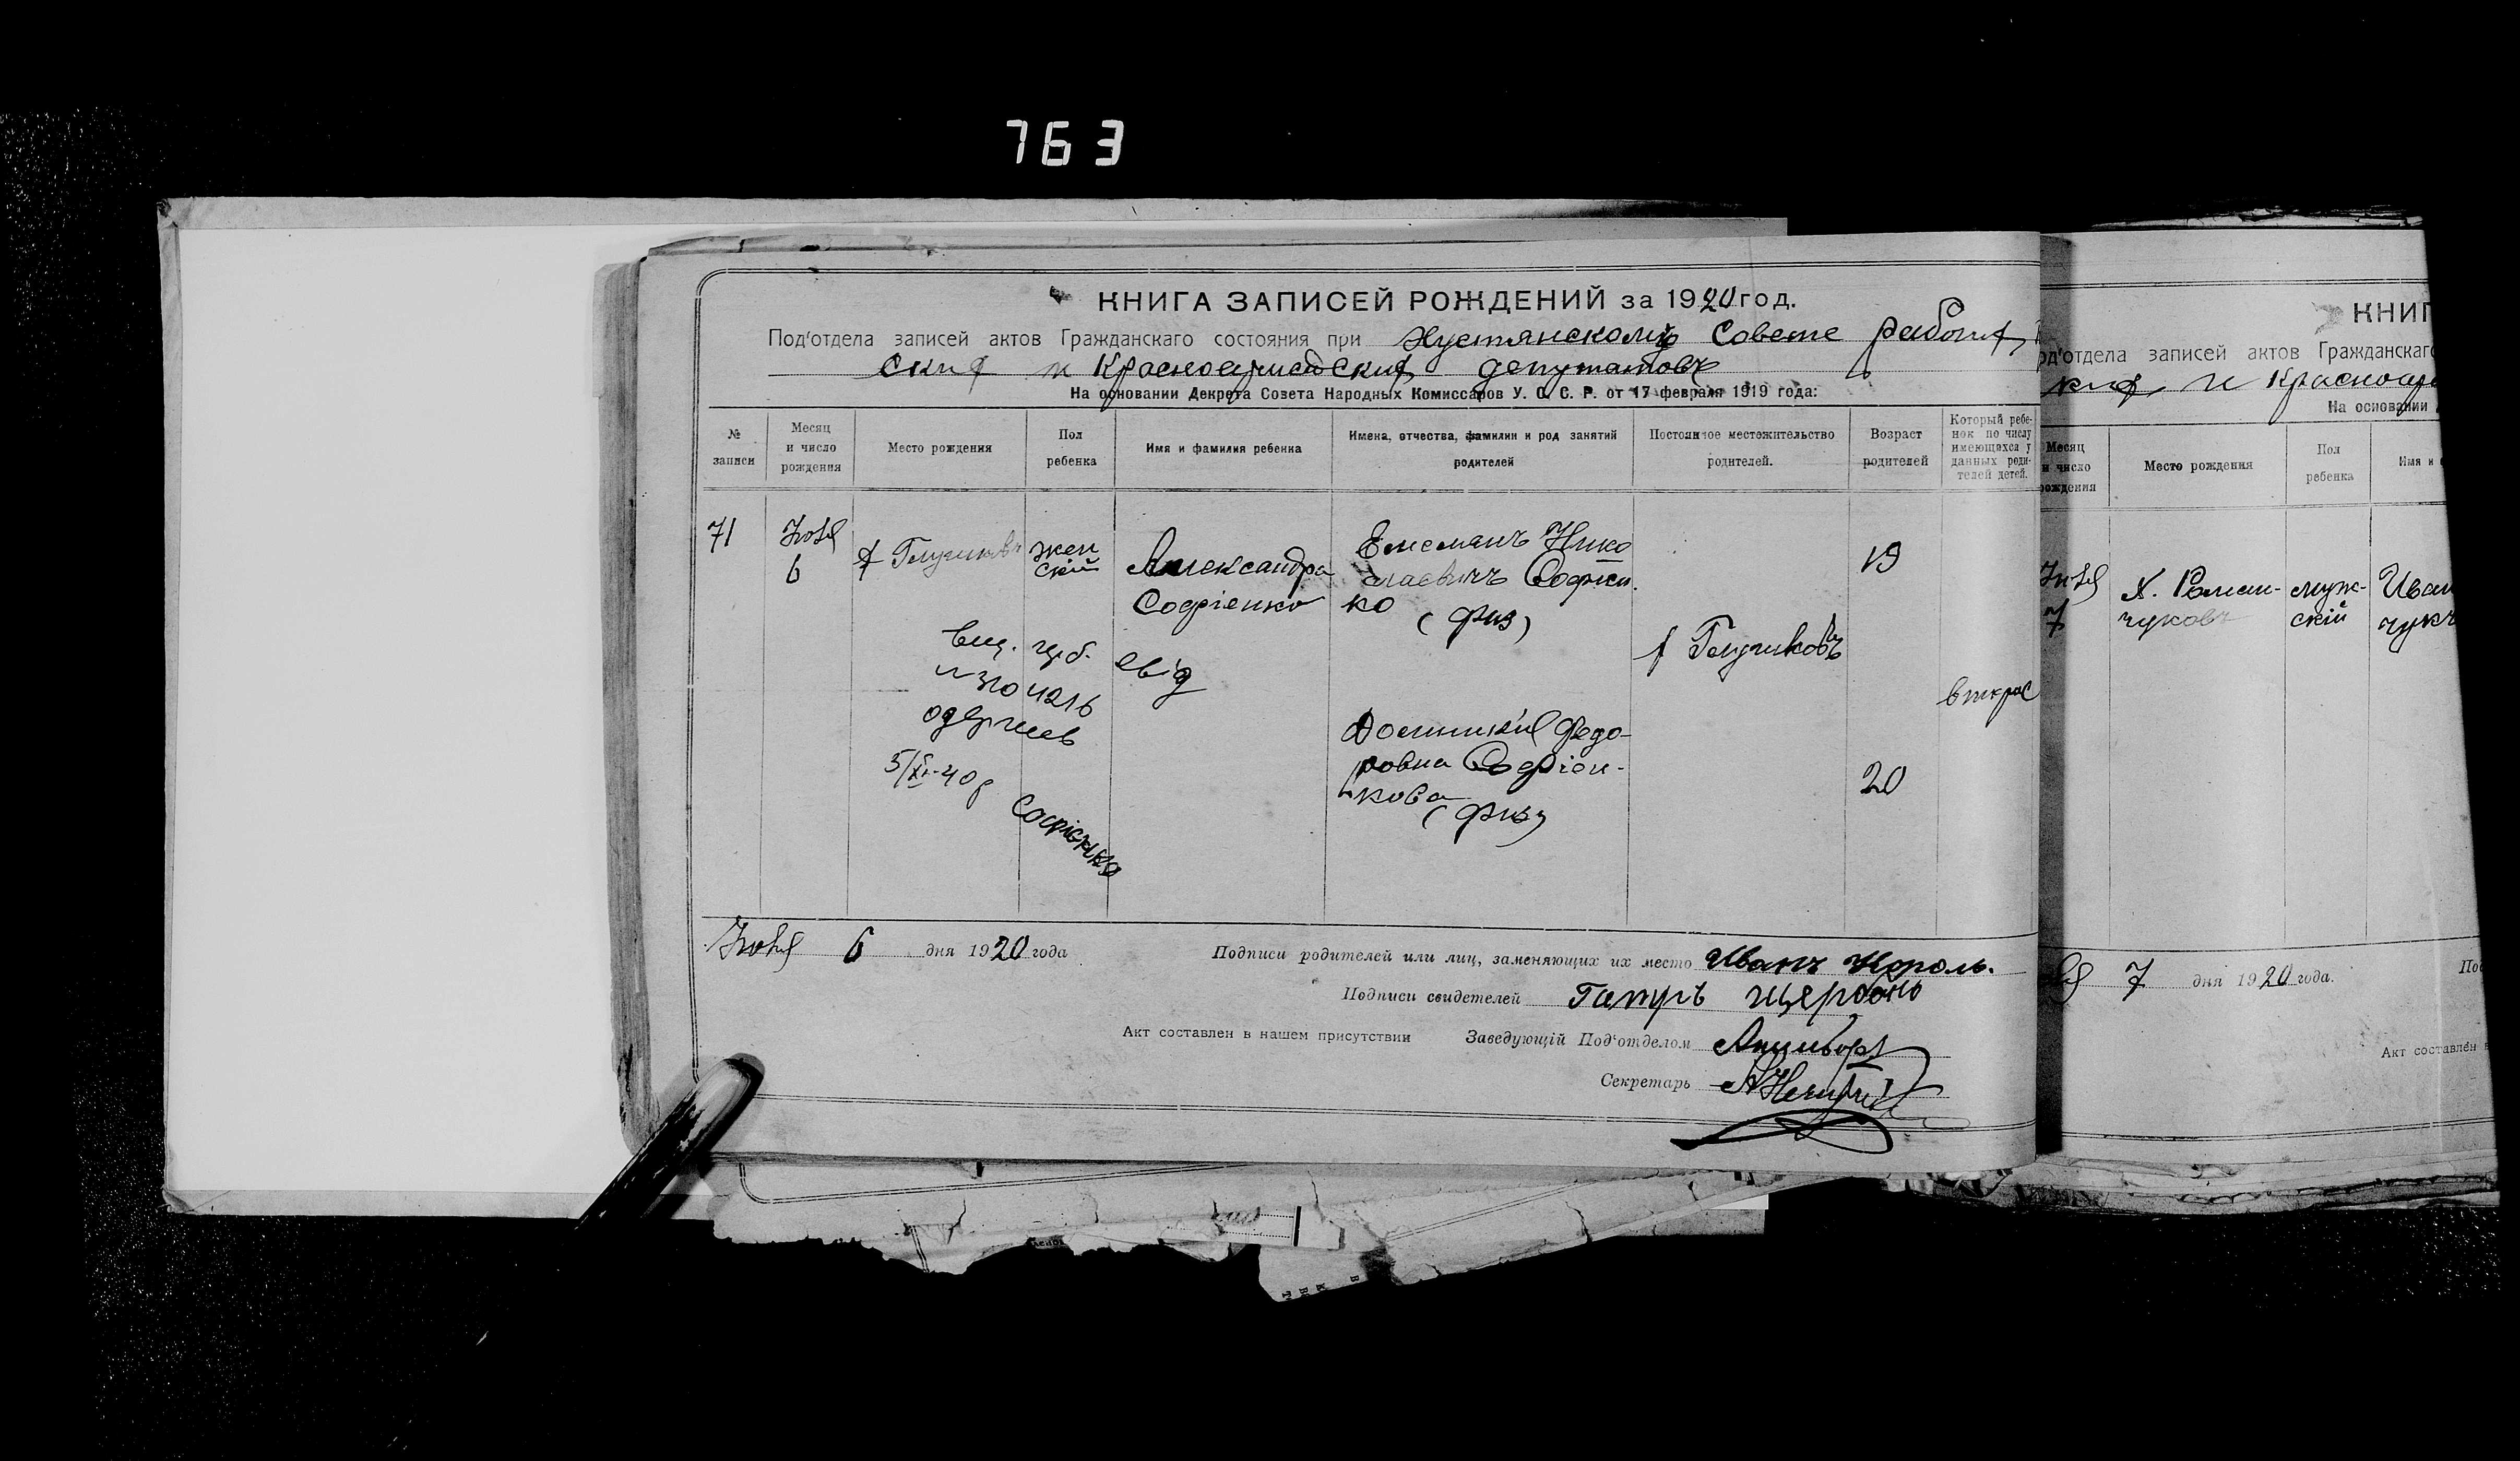 763
КНИГА ЗАПИСЕЙ РОЖДЕНИЙ за 1920 год.
Под'отдела записей актов Гражданскаго состояния при Хустянскомъ Совете рабочих,
ских и Красноармейских депутатовъ
На основании Декрета Совета Народных Комиссаров У. С. С. Р. от 17 февраля 1919 года:
№ записи
Месяц и число рождения
Место рождения
Пол ребенка
Имя и фамилия ребенка
Имена, отчества, фамилии и род занятий родителей
Постоянное местожительство родителей.
Возраст родителей
Который ребенок по числу имеющихся у данных родителей детей.
71
6
жен
ский
Александра
Софіенко
Емельянъ Нико
лаевичъ Софіен
ко
19
свід
№ 310
5/XI-40 р
Софієнко
Федо-
ровна Софіен-
кова
20
6 дня 1920 года
Подписи родителей или лиц, заменяющих их место Иванъ Король.
Подписи свидетелей
Акт составлен в нашем присутствии
Заведующій Под'отделом
Секретарь
КНИГ
од'отдела записей актов Гражданскаго
ких и Красноар
На основании
Месяц
и число
рождения
Место рождения
Пол
ребенка
Имя и
7
х. Роман-
чуковъ
муж-
скій
Иван
чукъ
7 дня 1920 года.
Под
Акт составлен в